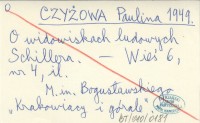 D
CZYŻOWA Paulina 1949.
O widowiskach ludowych
Schillera. — Wieś 6,
nr 4, il.
M.in. Bogusławskiego
„Krakowiacy i górale".